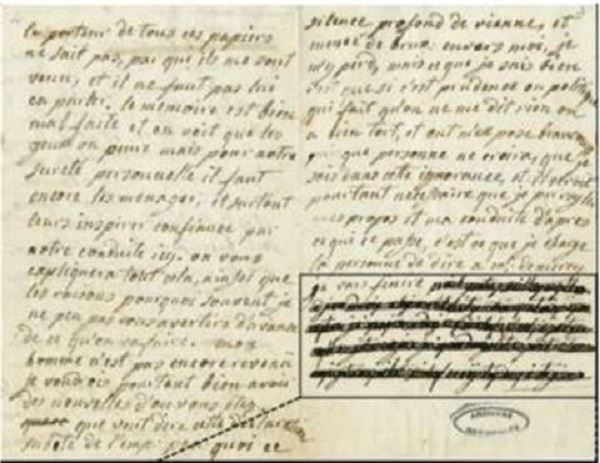 le porteur de tous ces papiers
ne sait pas, par qui ils me sont
venu, et il ne faut pas lui
en parler. le memoire est bien
mal faite et on voit que les
gens on peure mais pour notre
sureté personelle il faut
encore les menager, et surtout
leurs inspirer confiance par
notre conduite ici. on vous
expliquera tout cela, ainsi que
les raisons pourquoi souvent je
ne peu pas vous avertire d'avance
de ce qu'on va faire. mon
homme n'est pas encore revenu
je voudrois pourtant bien avoir
des nouvelles d'ou vous etes
que veut dire cette declaration
subite de l'emp: pour quoi ce
silence profond de vienne, et
meme de brux: envers moi, je
m'y perd, mais ce que je sais bien
c'est que si c'est prudence ou politique
qui fait qu'on ne me dit rien on
a bien tort, et on m'expose beaucoup
que personne ne croira que je
sois dans cette ignorance, et il seroit
pourtant necessaire que je
mes propos et ma conduite d'apres
ce qui se passe, c'est ce que je charge
la personne de dire a mr. de mercy
je vais finire
ARCHIVES
NATIONALES